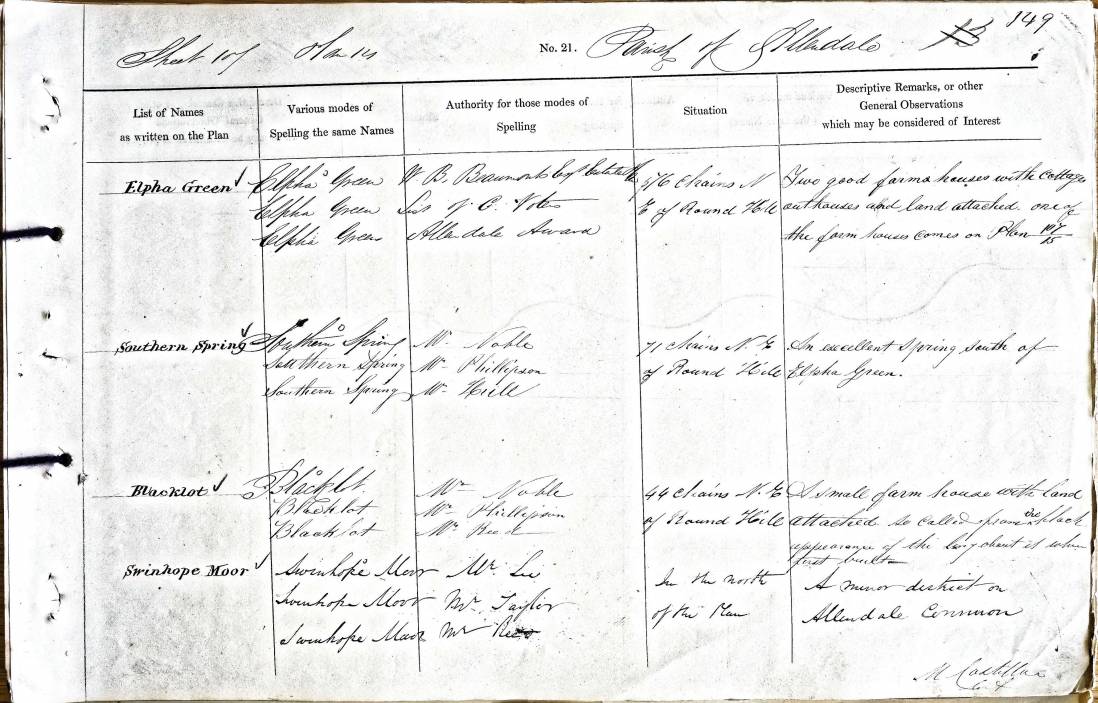 149
Sheet 107 No. 21. Parish of Allendale 13
List of Names
as written on the Plan
Various modes of
Spelling the same Names
Authority for those modes of
Spelling
Situation
Descriptive Remarks, or other
General Observations
which may be considered of Interest
Elpha Green
Elpha Green
Elpha Green
Elpha Green
W. B. Beaumont Esqr
List of C. Votes
Allendale Award
76 chains N
E of Round Hill
Two good farm houses with Cottage
outhouses and land attached one of
the farm houses comes on Plan 107/15
Southern Spring
Southern Spring
Southern Spring
Southern Spring
Mr Noble
Mr Phillipson
Mr Hill
71 Chains N. E
of Round Hill
An excellent Spring South of
Elpha Green.
Blacklot
Blacklot
Blacklot
Blacklot
Mr Noble
Mr Phillipson
Mr
44 chains N. E
of Round Hill
A small farm house with land
attached so called from the black
appearance of the ling about it when
first built
Swinhope Moor
Swinhope Moor
Swinhope Moor
Swinhope Moor
Mr. Lee
Mr. Taylor
Mr
In the north
of the Plan
A minor district on
Allendale Common